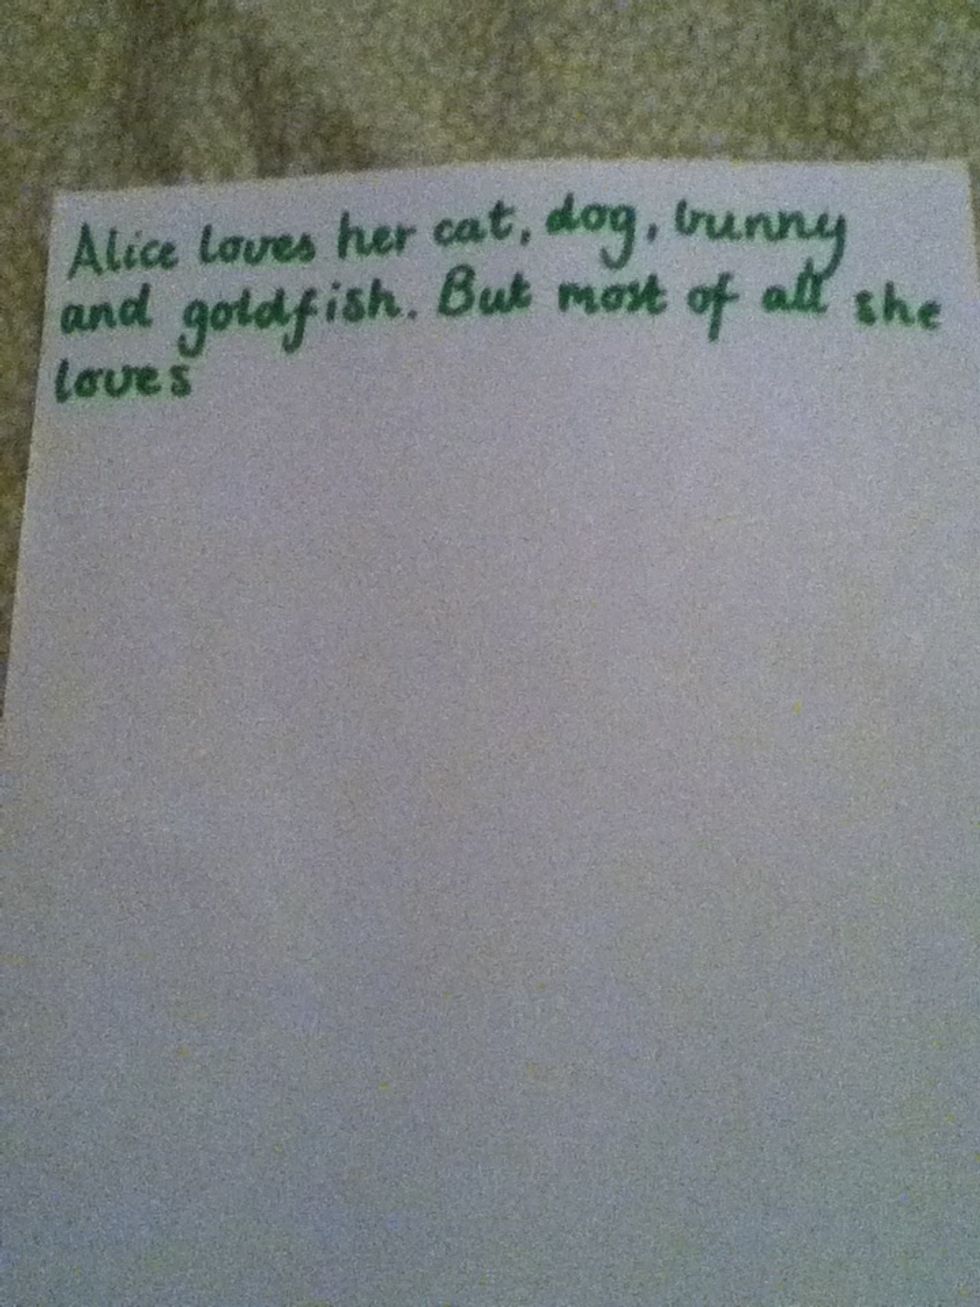 Alice loves her cat, dog, bunny
and goldfish. But most of all she
loves